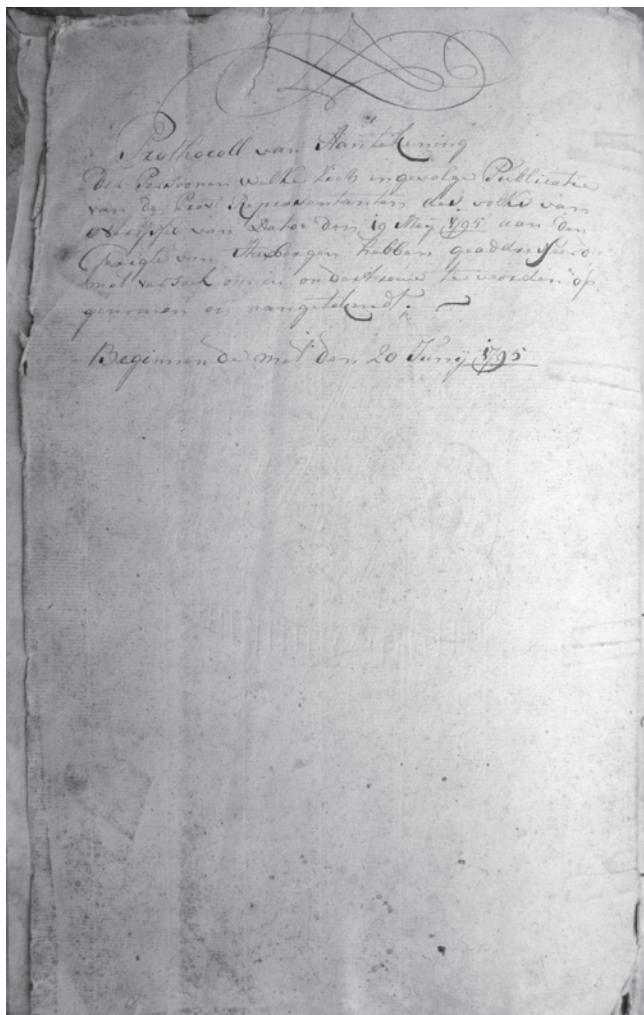 Prothocoll van Aantekening
Der Persoonen welke zich ingevolge Publicatie
van de Prov: Representanten des volks van
Overijssel van Dato den 19 Maÿ 1795 aan den
Gerigte van Tubbergen hebben geaddresseerd
met versoek om in ondertrouw te worden op„
genomen en aangetekendt;
Beginnende met den 20 Junÿ 1795